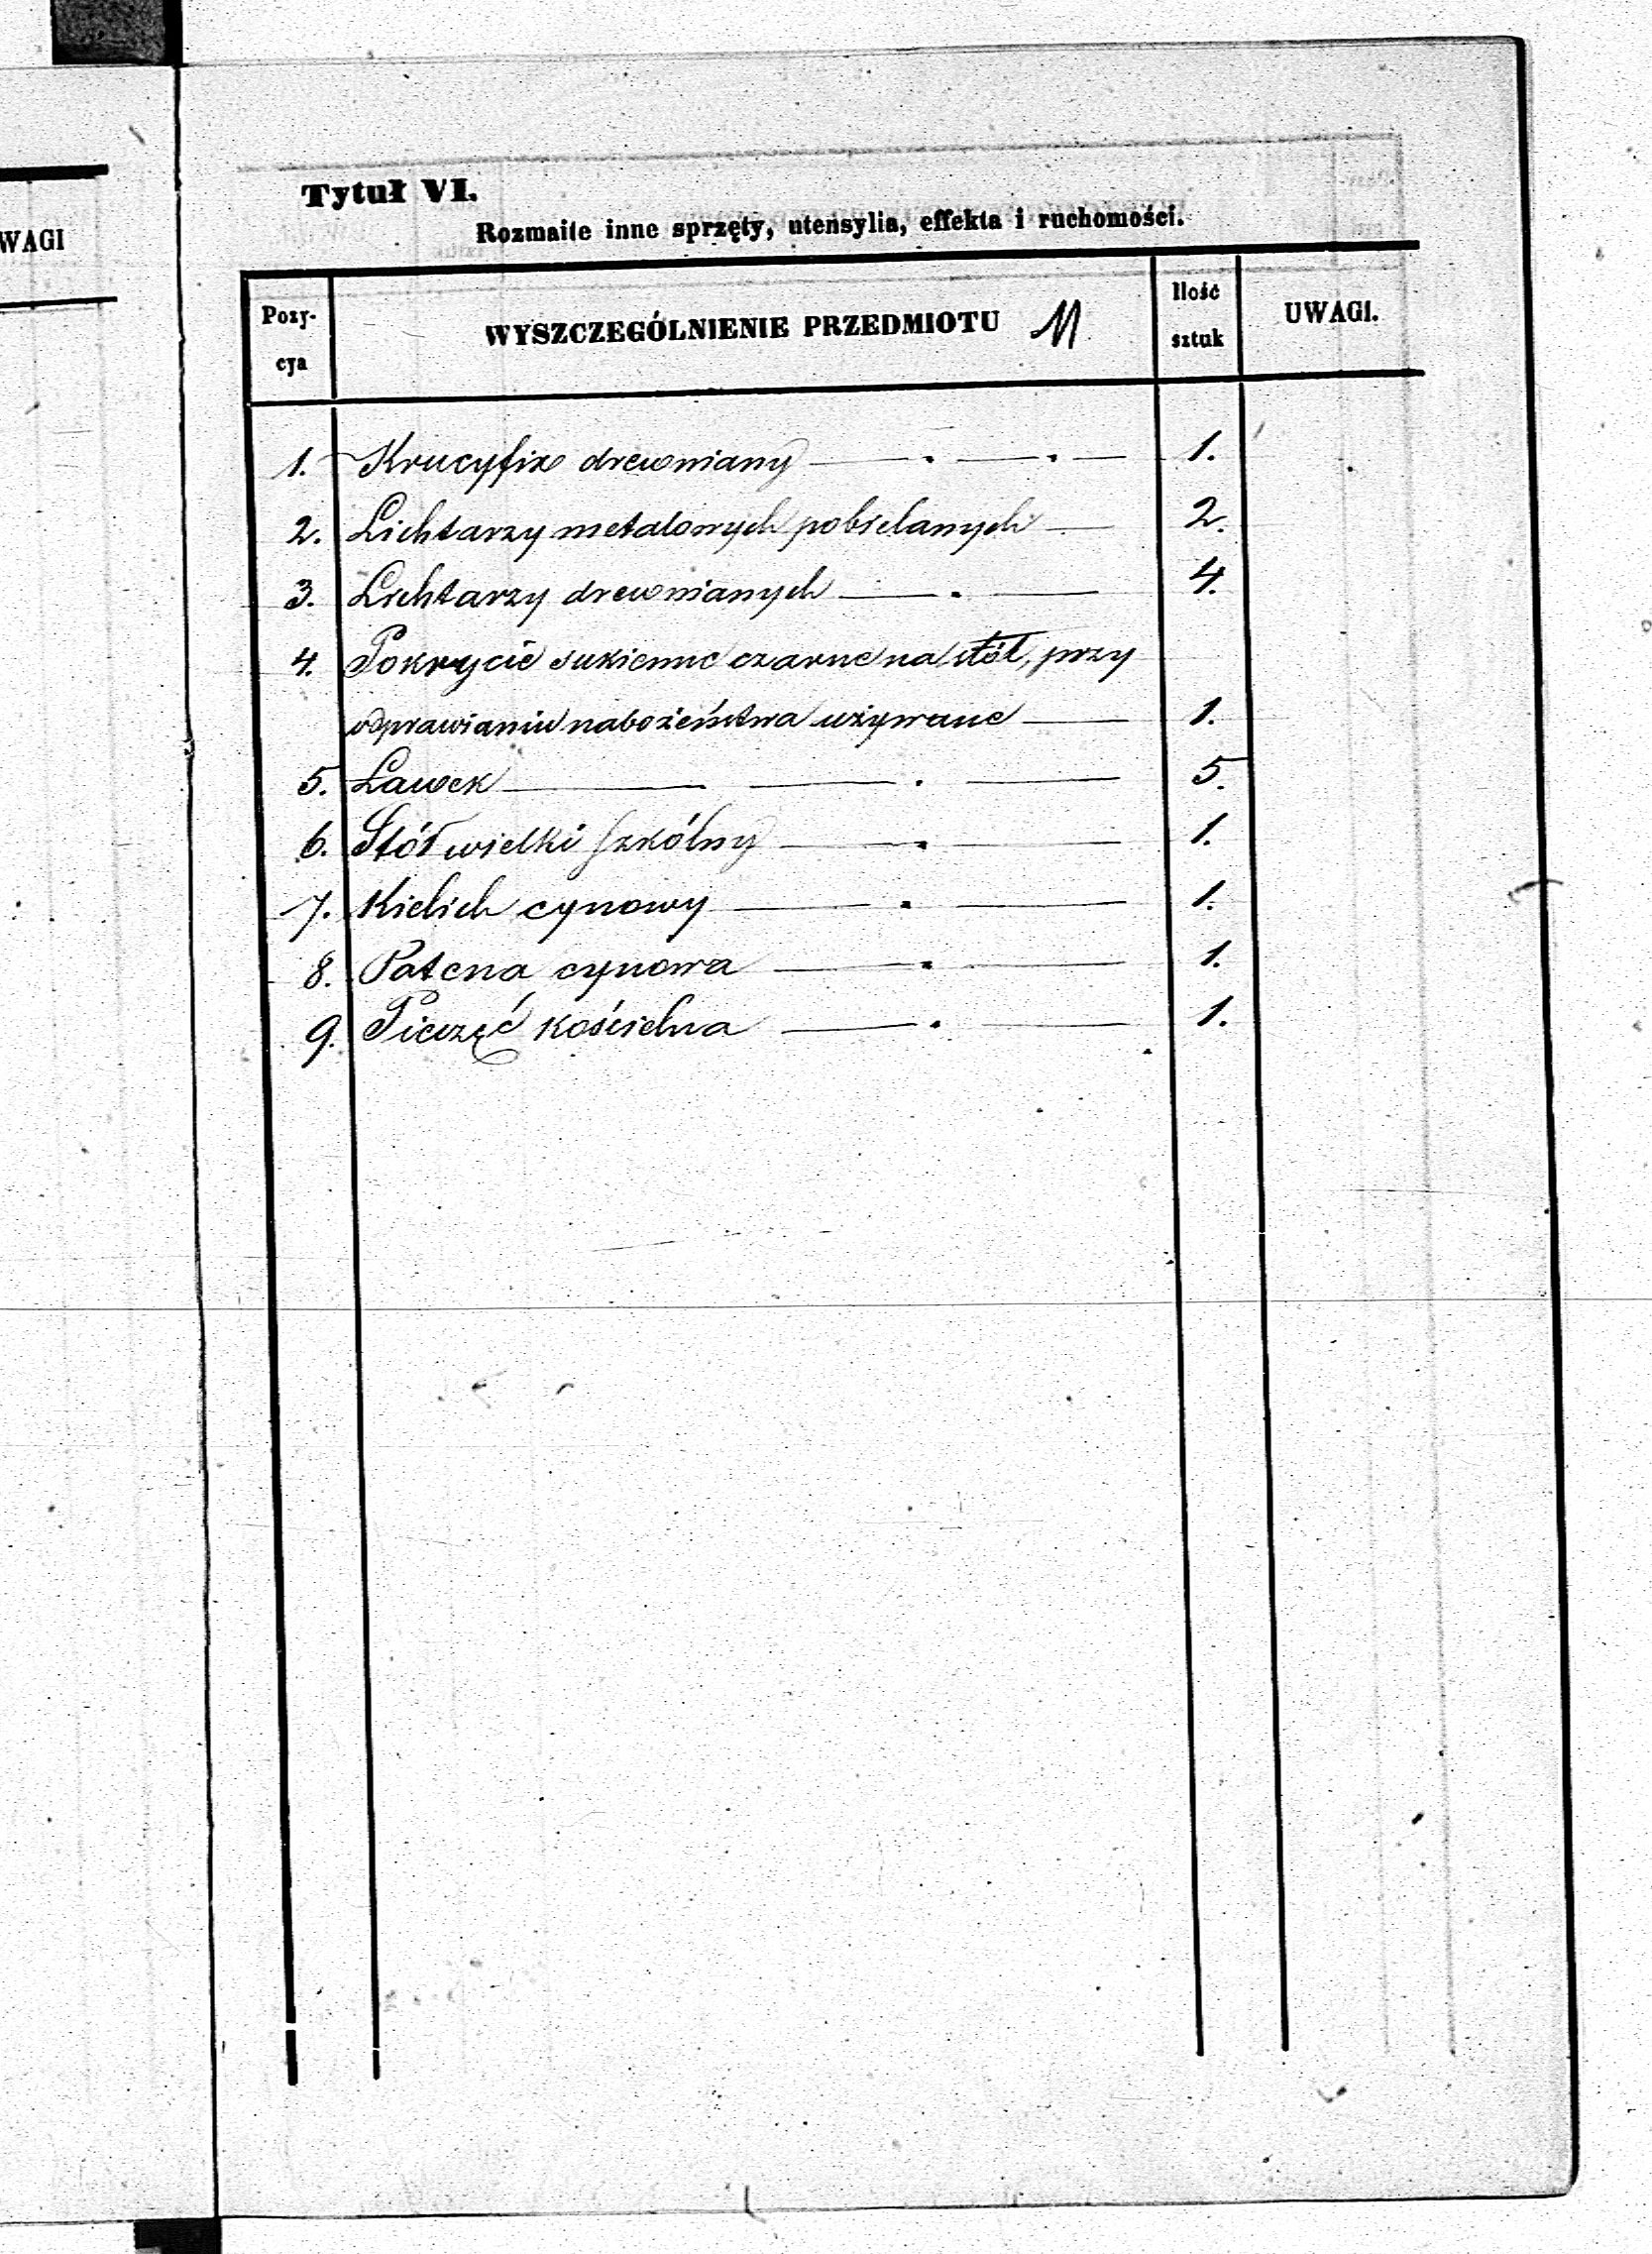 WAGI
Tytuł VI.
Rozmaite inne sprzęty, utensylia, effekta i ruchomości.
Pozy-
cya
WYSZCZEGÓLNIENIE PRZEDMIOTU 11
Ilość
sztuk
UWAGI.
1. Krucyfix drewniany 1.
2. Lichtarzy metalowych pobielanych 2.
3. Lichtarzy drewnianych 4.
4. Pokrycie sukienne czarne na stół, przy
odprawianiu nabożeństwa używane 1.
5. Ławek 5.
6. Stół wielki szkólny 1.
7. Kielich cynowy 1.
8. Patena cynowa 1.
9. Pieczęć kościelna 1.